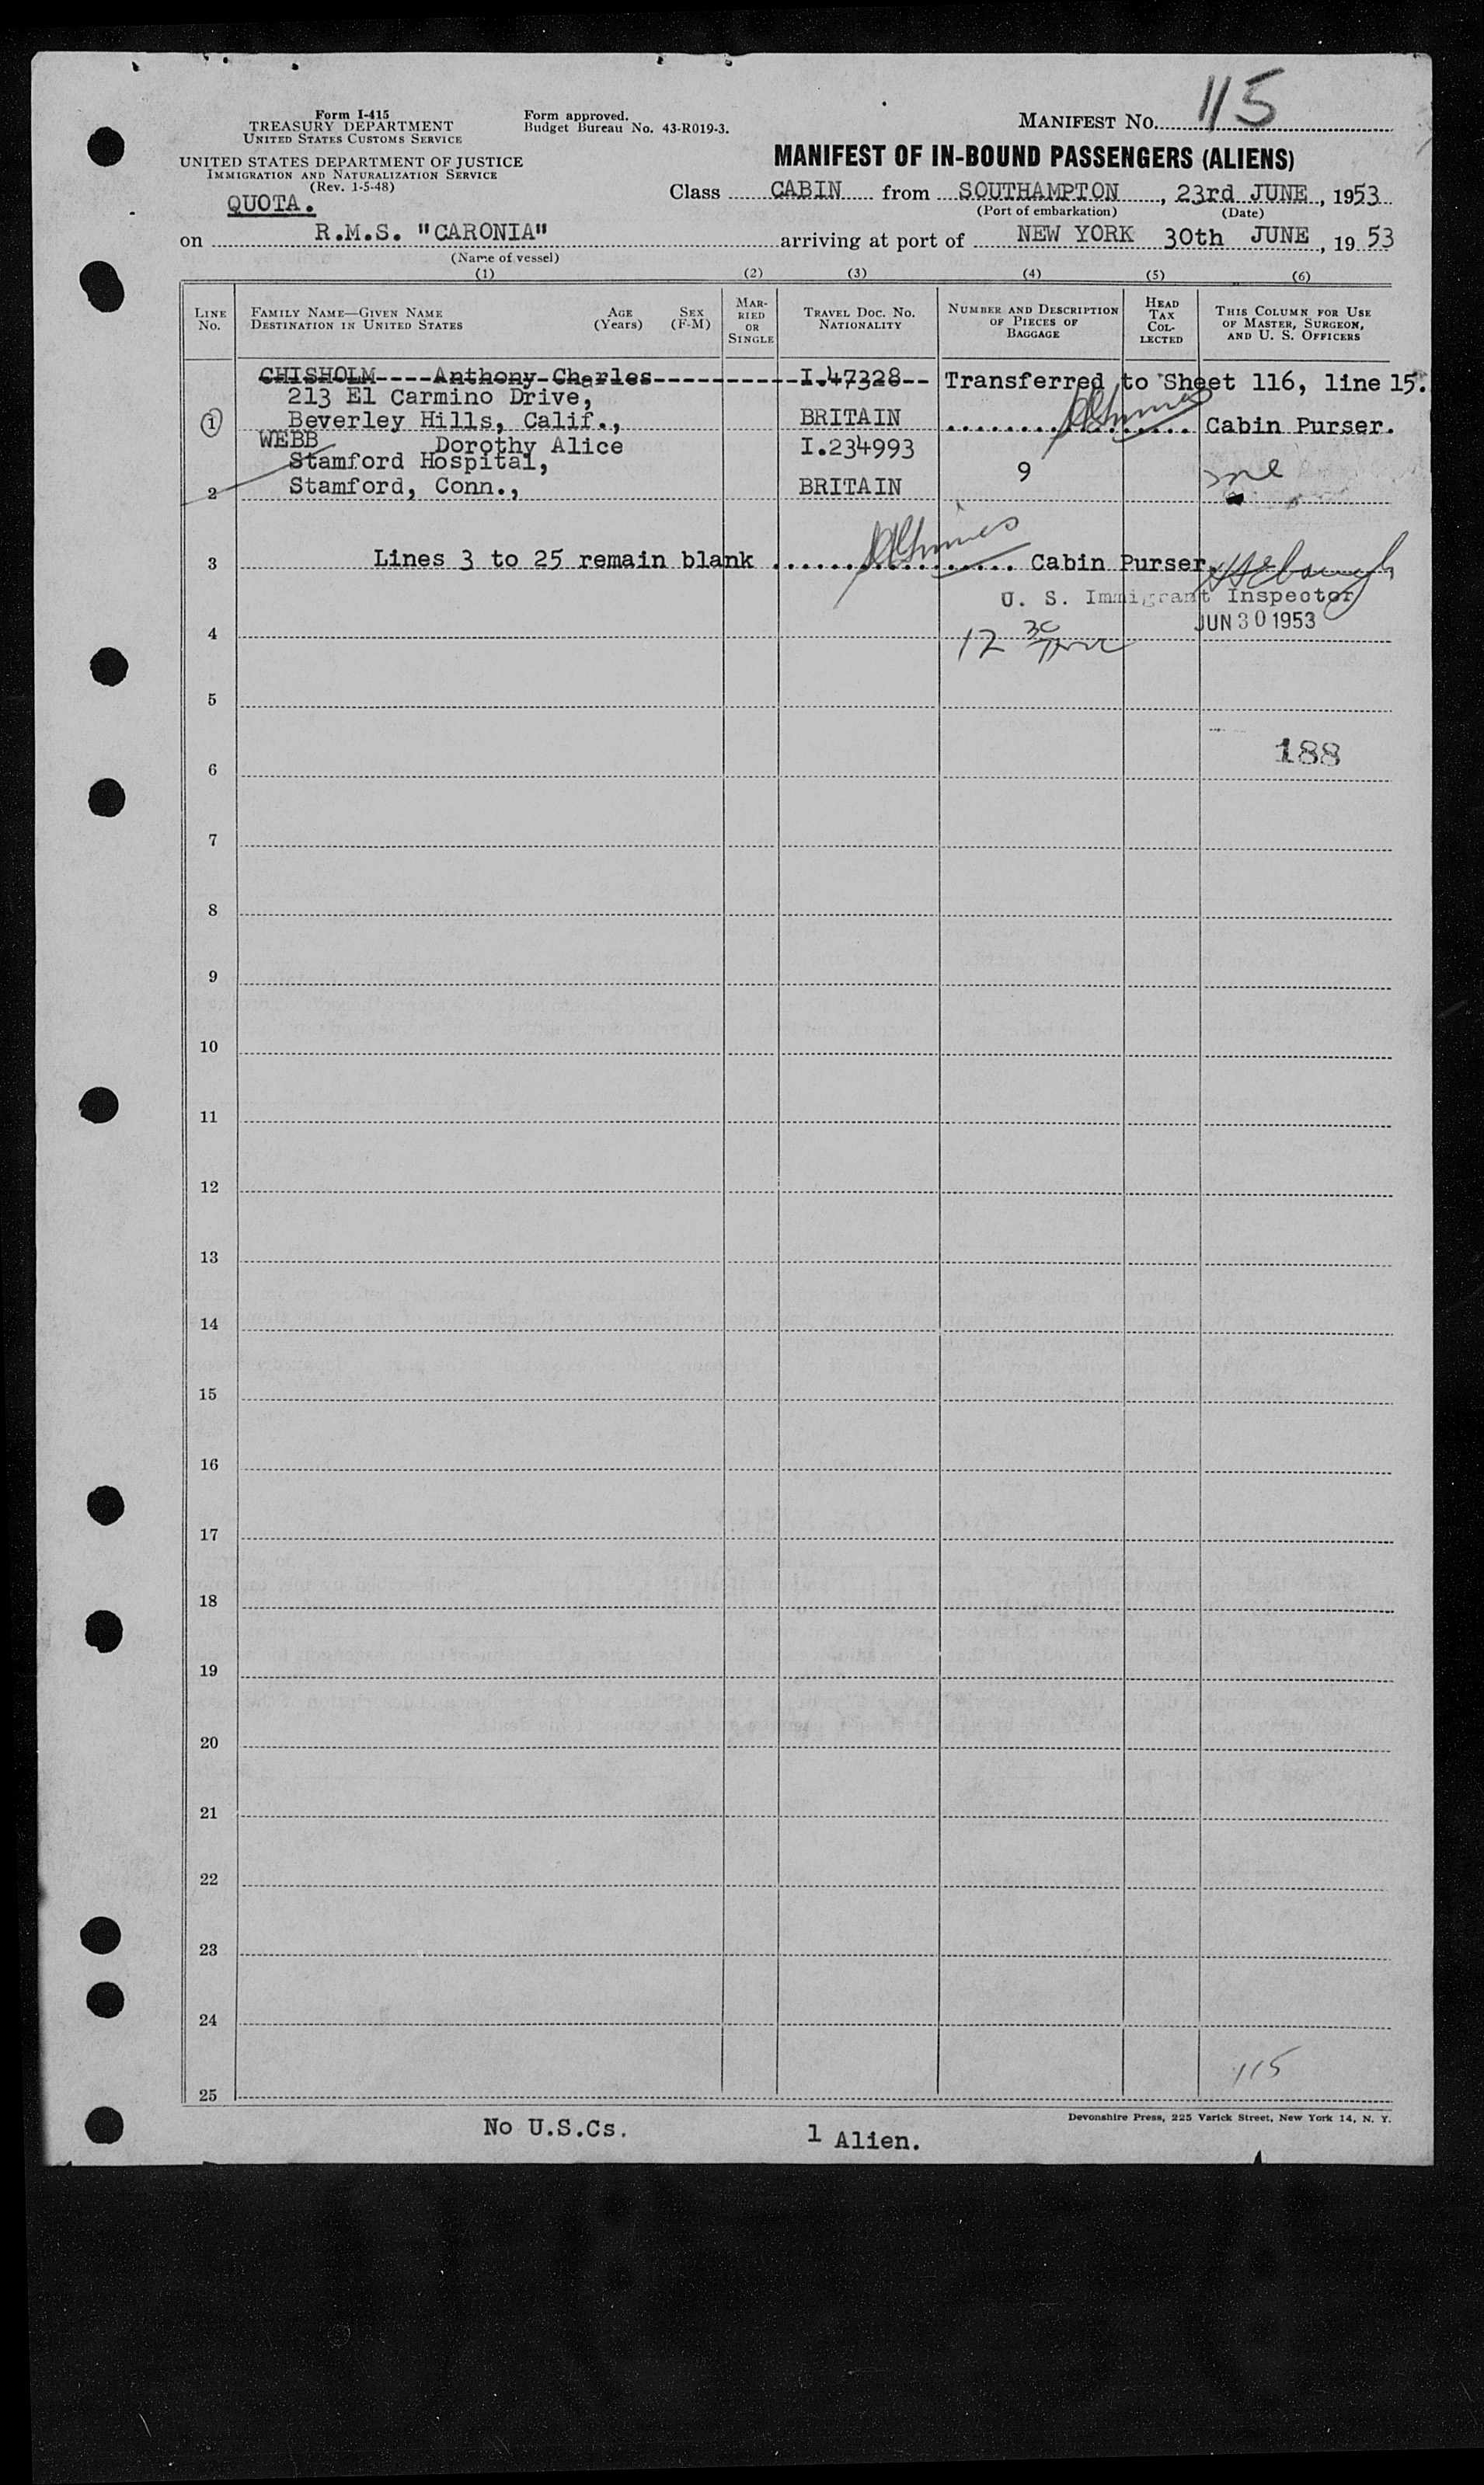 115
Form I-415
TREASURY DEPARTMENT
UNITED STATES CUSTOMS SERVICE
Form approved.
Budget Bureau No. 43-R019-3.
MANIFEST NO. 115
UNITED STATES DEPARTMENT OF JUSTICE
IMMIGRATION AND NATURALIZATION SERVICE
(Rev. 1-5-48)
QUOTA.
MANIFEST OF IN-BOUND PASSENGERS (ALIENS)
Class CABIN from SOUTHAMPTON, 23rd JUNE, 1953
(Port of embarkation) (Date)
on R.M.S. "CARONIA" arriving at port of NEW YORK 30th JUNE, 1953
(Name of vessel)
(1) (2) (3) (4) (5) (6)
LINE No. FAMILY NAME—GIVEN NAME DESTINATION IN UNITED STATES AGE (Years) SEX (F-M) MARRIED OR SINGLE TRAVEL DOC. NO. NATIONALITY NUMBER AND DESCRIPTION OF PIECES OF BAGGAGE HEAD TAX COLLECTED THIS COLUMN FOR USE OF MASTER, SURGEON, AND U. S. OFFICERS
CHISHOLM----Anthony-Charles-----------I.47328-- Transferred to Sheet 116, line 15.
213 El Carmino Drive,
1 Beverley Hills, Calif., BRITAIN ................. Cabin Purser.
WEBB Dorothy Alice I.234993
Stamford Hospital, 9
2 Stamford, Conn., BRITAIN
3 Lines 3 to 25 remain blank ................. Cabin Purser.
U. S. Immigrant Inspector
JUN 30 1953
4 12 30
5
188
6
7
8
9
10
11
12
13
14
15
16
17
18
19
20
21
22
23
24
115
25
Devonshire Press, 225 Varick Street, New York 14, N. Y.
No U.S.Cs. 1 Alien.